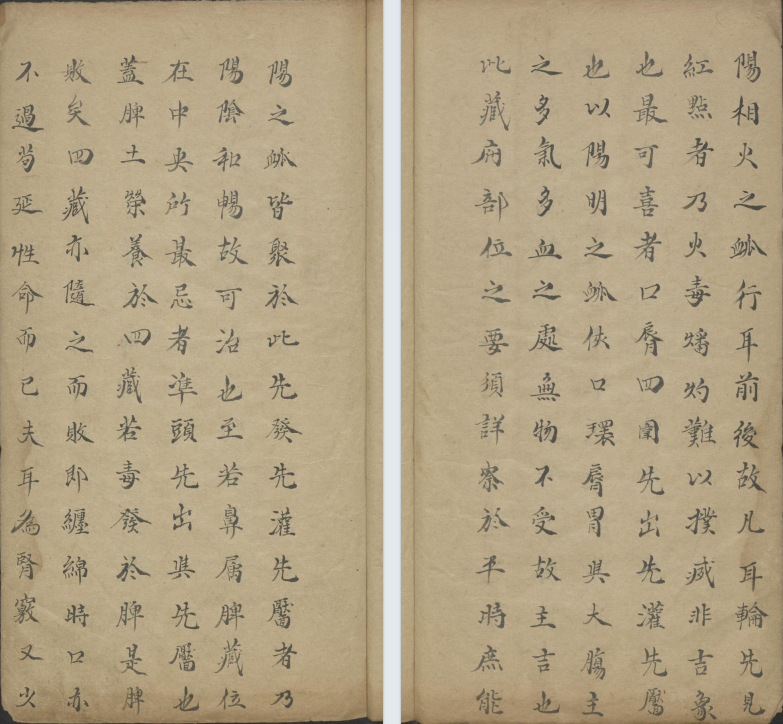 陽之脉皆聚於此先發先灌先靨者乃
陽陰和暢故可治也至若鼻属脾藏位
在中央所最忌者準頭先出與先靨也
蓋脾土榮養於四藏若毒發於脾是脾
敗矣四藏亦隨之而敗即纏綿時口亦
不過苟延性命而已夫耳為腎竅又少
陽相火之脉行耳前後故凡耳輪先見
紅點者乃火毒燔灼難以撲滅非吉象
也最可喜者口脣四圍先出先灌先靨
也以陽明之脉俠口環脣胃與大腸主
之多氣多血之處無物不受故主吉也
此藏府部位之要須詳察於平時庶能